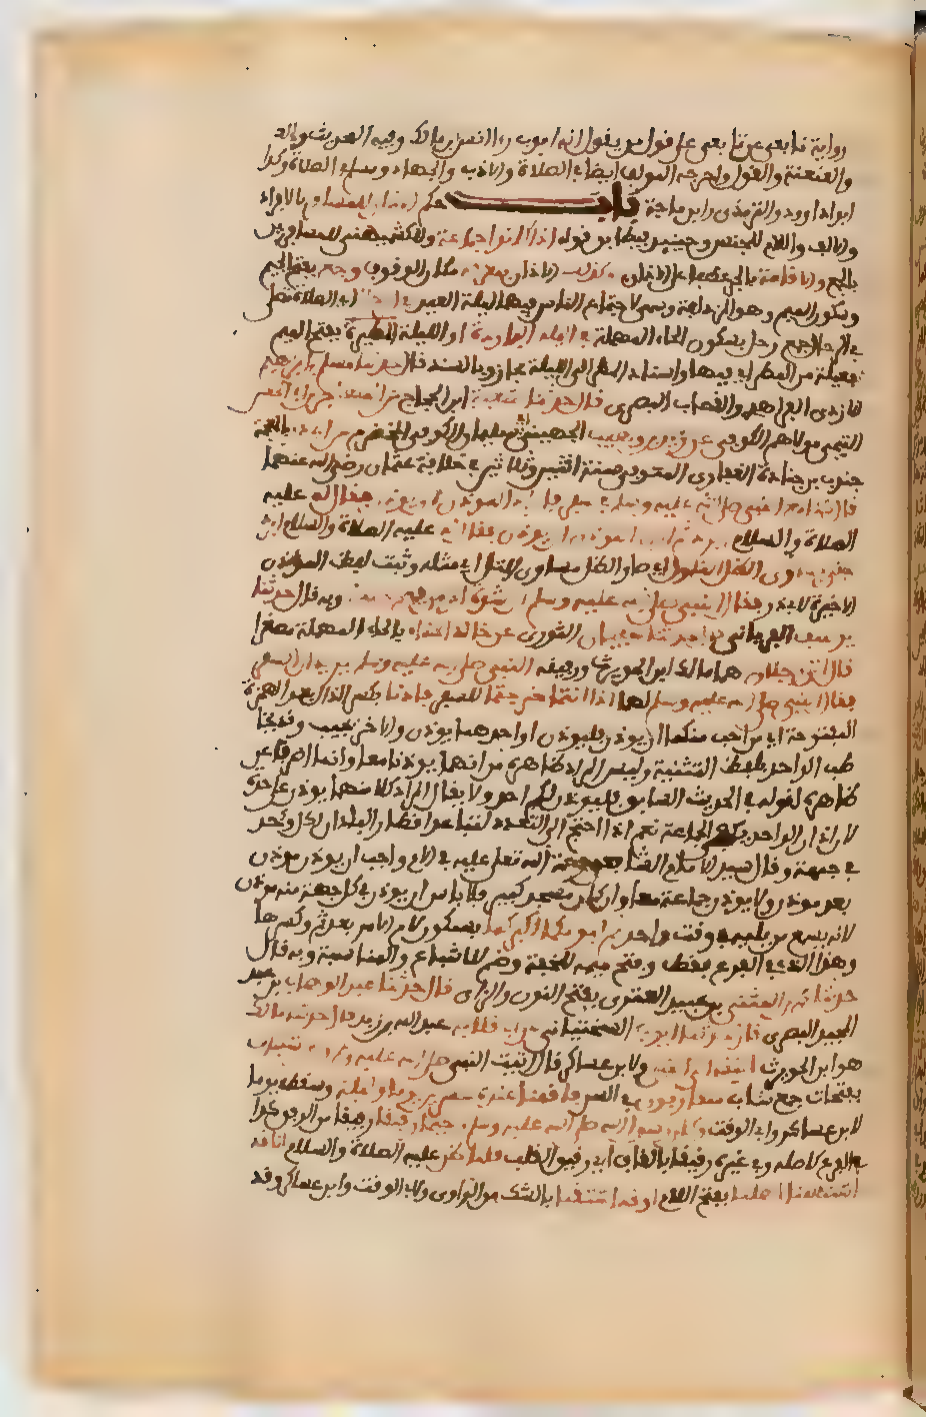 رواية تابعي عن تابعي على قول من يقول انه ايوب راا انس بن مالك وفيه التحديث والعـ
والعنعنة والقول واخرجه المولف ايضا في الصلاة والادب والجهاد ومسلم في الصلاة وكذا
ابو داوود والترمذي وابن ماجة باب حكم الاذان للمسافر بالافراد
والالف واللام للجنس وحينئذ فيطابق قوله اذا كانوا جماعة وللكشميهني للمسافرين
بالجمع والاقامة بالجر عطفا على الاذان وكذلك الاذان بعرفة مكان الوقوف وجمع بفتح الجيم
وسكون الميم وهو المزدلفة وسمي لاجتماع الناس فيها ليلة العيد وقول المؤذن الصلاة
في الرحال جمع رحل بسكون الحاء المهملة في الليلة الباردة او الليلة المطيرة بفتح الميم
فعيلة من المطر اي فيها واسناد المطر الى الليلة مجاز وبالسند قال حدثنا مسلم بن ابراهيم
الازدي الفراهيدي القصاب البصري قال حدثنا شعبة ابن الحجاج عن المهاجر ابي الحسن
التيمي مولاهم الكوفي عن زيد بن وهب الجهني ابي سليمان الكوفي المخضرم عن ابي ذر
جندب بن جنادة الغفاري المتوفى سنة اثنتين وثلاثين في خلافة عثمان رضي الله عنهما
قال كنا مع النبي صلى الله عليه وسلم في سفر فاراد المؤذن ان يؤذن فقال له عليه
الصلاة والسلام ابرد ثم اراد المؤذن ان يؤذن فقال له عليه الصلاة والسلام ابرد
حتى ساوى الظل التلول اي صار الظل مساوي التل اي مثله وثبت لفظ المؤذن
الاخيرة لابي ذر فقال النبي صلى الله عليه وسلم ان شدة الحر من فيح جهنم وبه قال حدثنا
محمد بن يوسف الفريابي قال حدثنا سفيان الثوري عن خالد الحذاء بالحاء المهملة
قال اتى رجلان هما مالك ابن الحويرث ورفيقه النبي صلى الله عليه وسلم يريدان السفر
فقال النبي صلى الله عليه وسلم لهما اذا انتما خرجتما للسفر فاذنا بكسر الذال بعد الهمزة
المفتوحة اي من احب منكما ان يؤذن فليؤذن او احدهما يؤذن والاخر يجيب وقد يخا
طب الواحد بلفظ التثنية وليس المراد ظاهره من انهما يؤذنا معا وانما صرفناه عن
ظاهره لقوله في الحديث السابق فليؤذن لكم احدكم ولا يقال المراد ان كلا منهما يؤذن على حدة
لان اذان الواحد يكفي الجماعة نعم اذا احتيج الى التعدد لتباعد اقطار البلد اذن كل واحد
في جهة وقال الامام الشافعي رحمة الله تعالى عليه في الام واحب ان يؤذن مؤذن
بعد مؤذن ولا يؤذن جماعة معا وان كان مسجد كبير فلا باس ان يؤذن في كل جهة منه مؤذن
لانه يسمع من يليه في وقت واحد ثم اقيما ثم ليؤمكما اكبركما بسكون لام الامر بعد ثم وكسرها
وهذا الذي في الفرع فقط وبفتح ميمه للخفة وضم للاتباع والمناسبة وبه قال
حدثنا محمد بن المثنى بن عبيد العنزي بفتح النون والزاي قال حدثنا عبد الوهاب بن عبد
المجيد البصري قال حدثنا ايوب السختياني عن ابي قلابة عبد الله بن زيد قال حدثنا مالك
هو ابن الحويرث اتينا الى النبي ولابن عساكر قال اتيت النبي صلى الله عليه وسلم ونحن شببة
بفتحات جمع شاب متقاربون في السن فاقمنا عنده عشرين يوما وليلة وسقط يوما
لابن عساكر وابي الوقت وكان رسول الله صلى الله عليه وسلم رحيما رفيقا بالفا من الرفق كذا
في الفرع كاصله وفي غيره رقيقا بالقاف اي رقيق القلب فلما ظن عليه الصلاة والسلام انا قد
اشتهينا اهلنا بفتح اللام او قد اشتقنا بالشك من الراوي ولابي الوقت وابن عساكر وقد